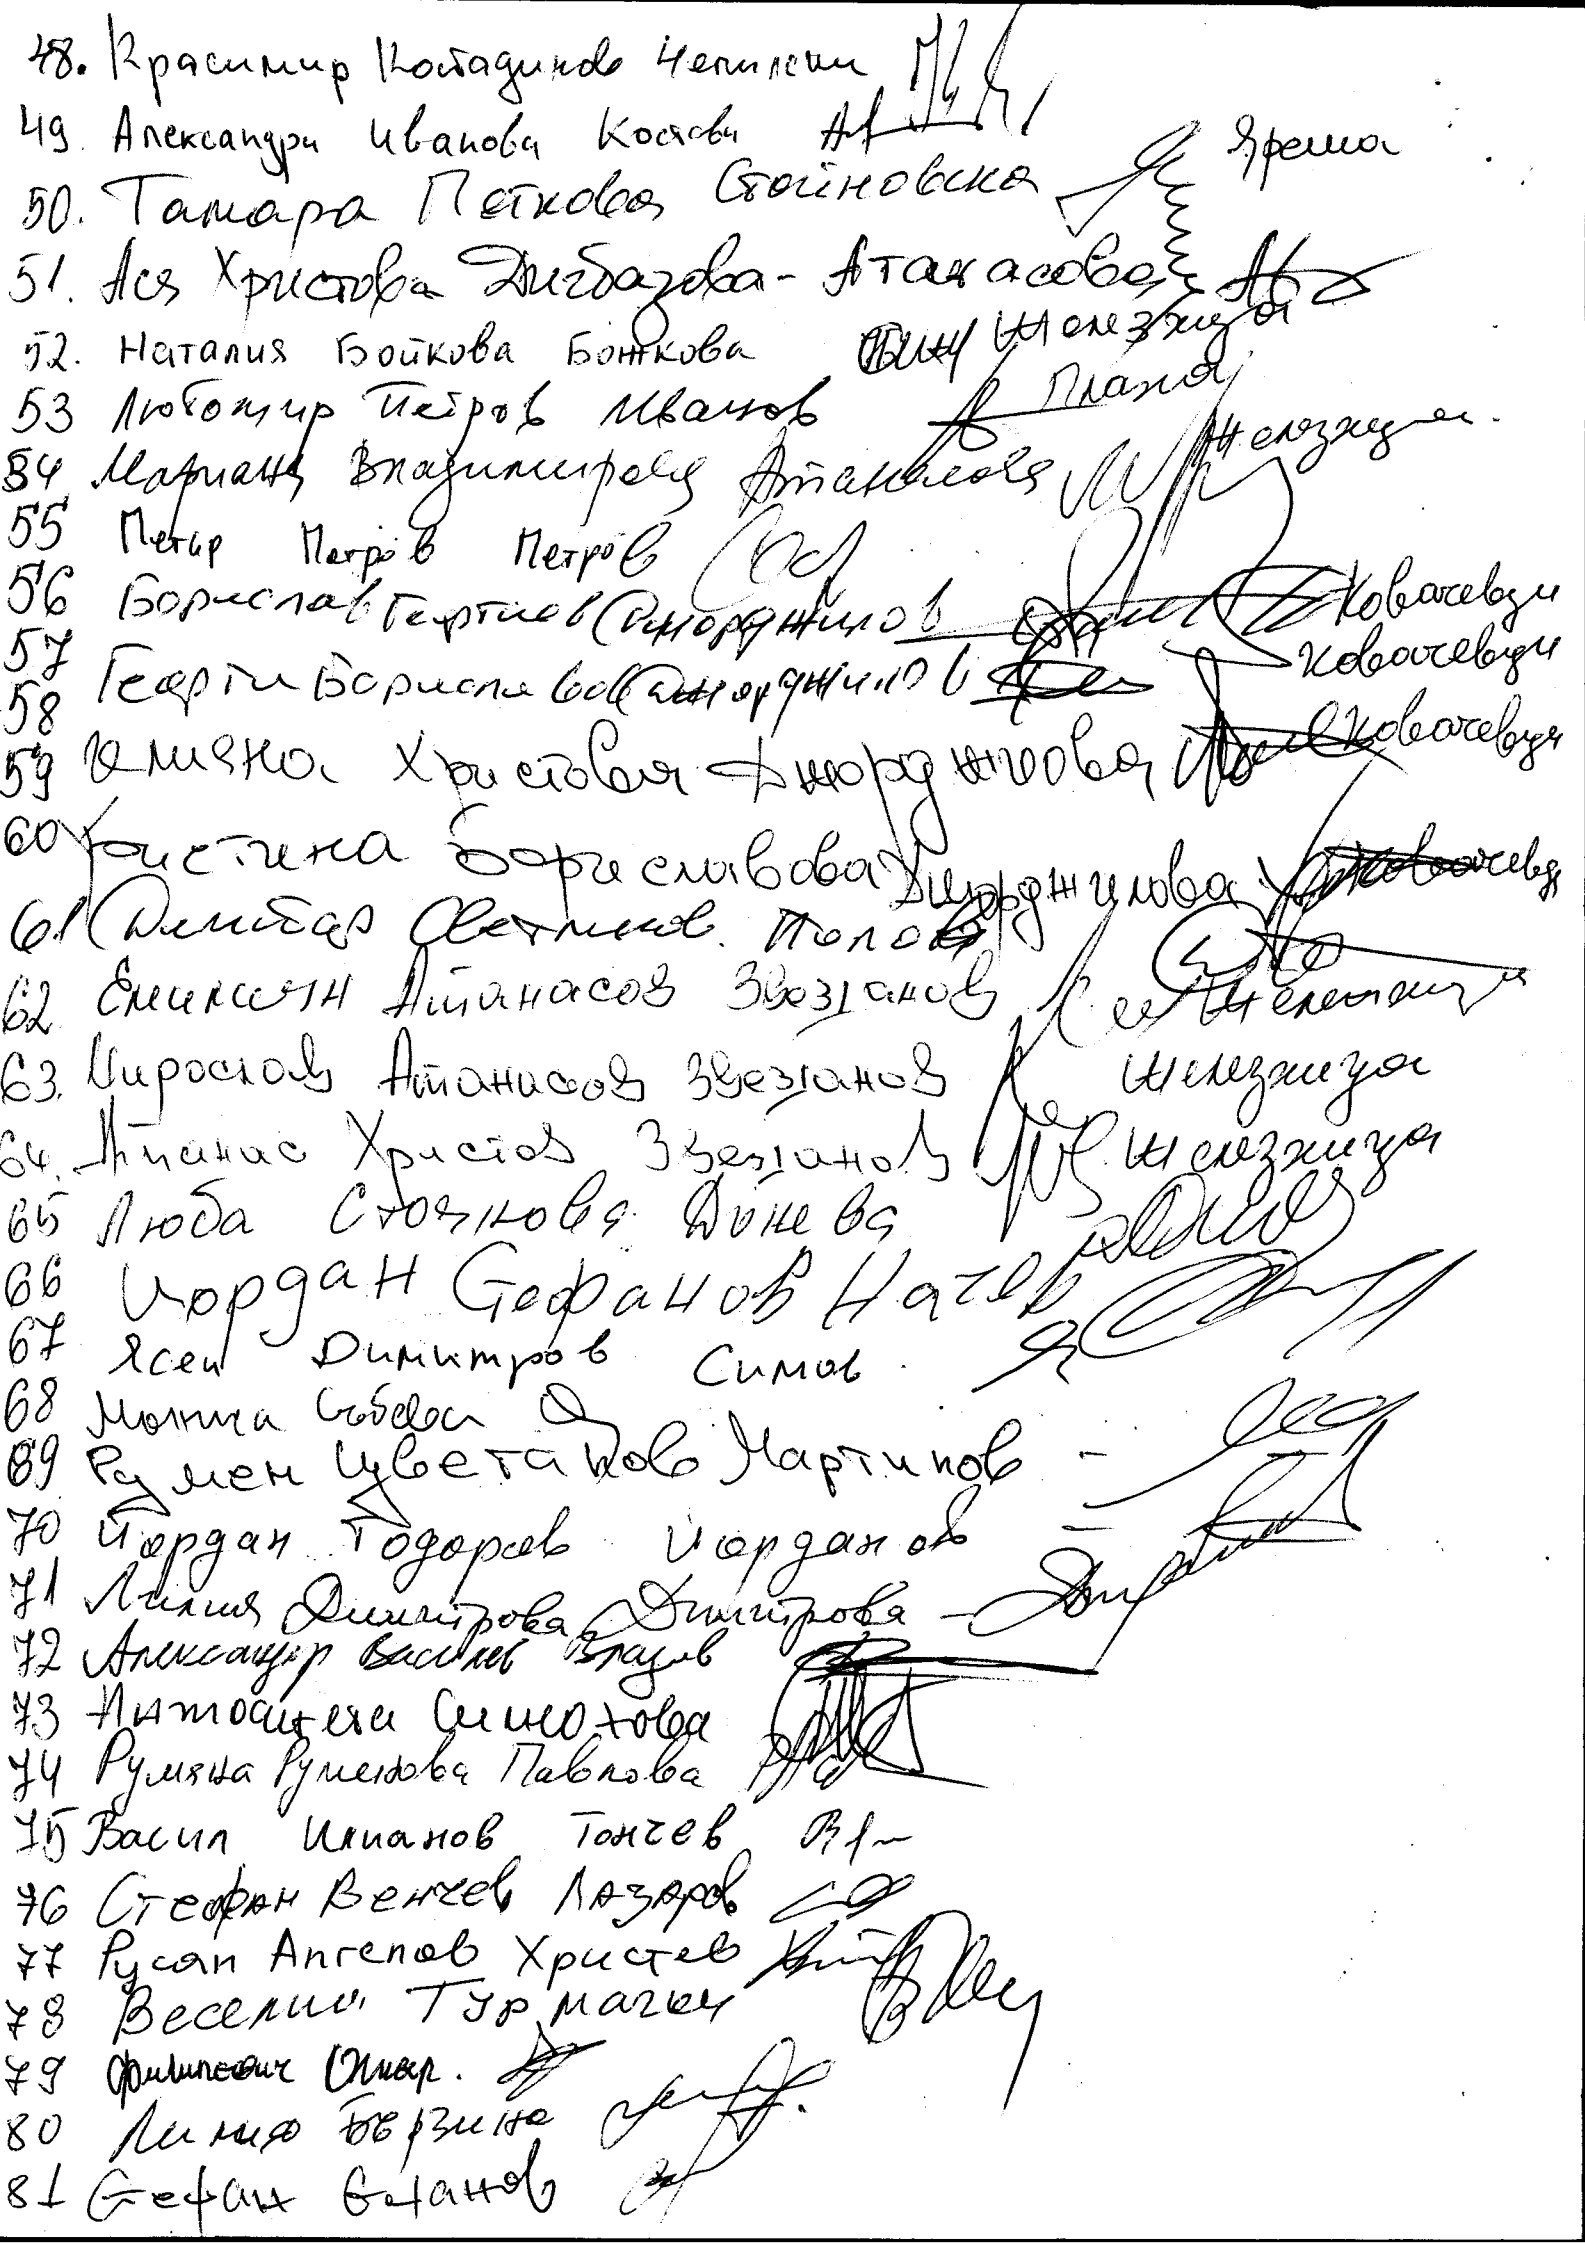 48. Красимир Костадинов
49. Александра Иванова Костова Ярема
50. Тамара Петкова Стойновска
51. Ася Христова Атанасова
52. Наталия Бойкова Божкова Железница
53 Любомир Петров Иванов Плана
54 Мариана Владимирова Атанасова Железница
55 Петър Петров Петров
56 Борислав Георгиев Джорджилов Ковачевци
57 Георги Бориславов Джорджилов Ковачевци
58
59 Илияна Христова Джорджилова Ковачевци
60 Христина Бориславова Джорджилова Ковачевци
61 Димитър Попов
62 Емилиян Атанасов Звезданов Железница
63. Мирослав Атанасов Звезданов Железница
64. Атанас Христов Звезданов Железница
65 Люба Стоянова Донева
66 Йордан Стефанов Начев
67 Ясен Димитров Симов
68
69 Румен Цветанов Мартинов
70 Йордан Тодоров Йорданов
71 Лилия Димитрова Димитрова
72 Александър Василев
73 Антоанета Симонова
74 Румяна Руменова Павлова
75 Васил Илианов Тончев
76 Стефан Венчев Лазаров
77 Русан Ангелов Христов
78 Веселин
79
80 Лилия Берзина
81 Стефан Стефанов